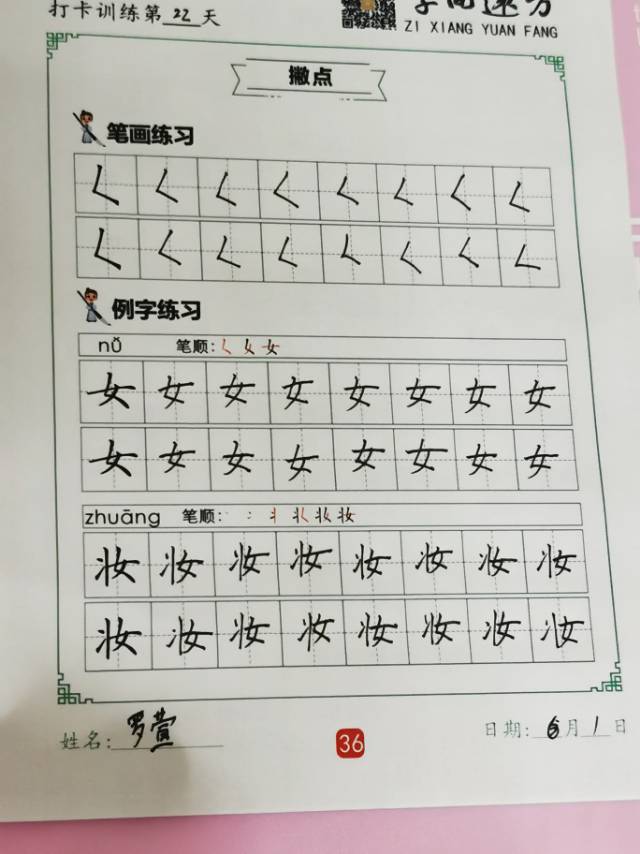 打卡训练第22天
字向远方
ZI XIANG YUAN FANG
撇点
笔画练习
𡿨 𡿨 𡿨 𡿨 𡿨 𡿨 𡿨 𡿨
𡿨 𡿨 𡿨 𡿨 𡿨 𡿨 𡿨 𡿨
例字练习
nǚ 笔顺: 𡿨 女 女
女 女 女 女 女 女 女 女
女 女 女 女 女 女 女 女
zhuāng 笔顺:
妆 妆 妆 妆 妆 妆 妆 妆
妆 妆 妆 妆 妆 妆 妆 妆
姓名: 罗萱
36
日期: 6月1日